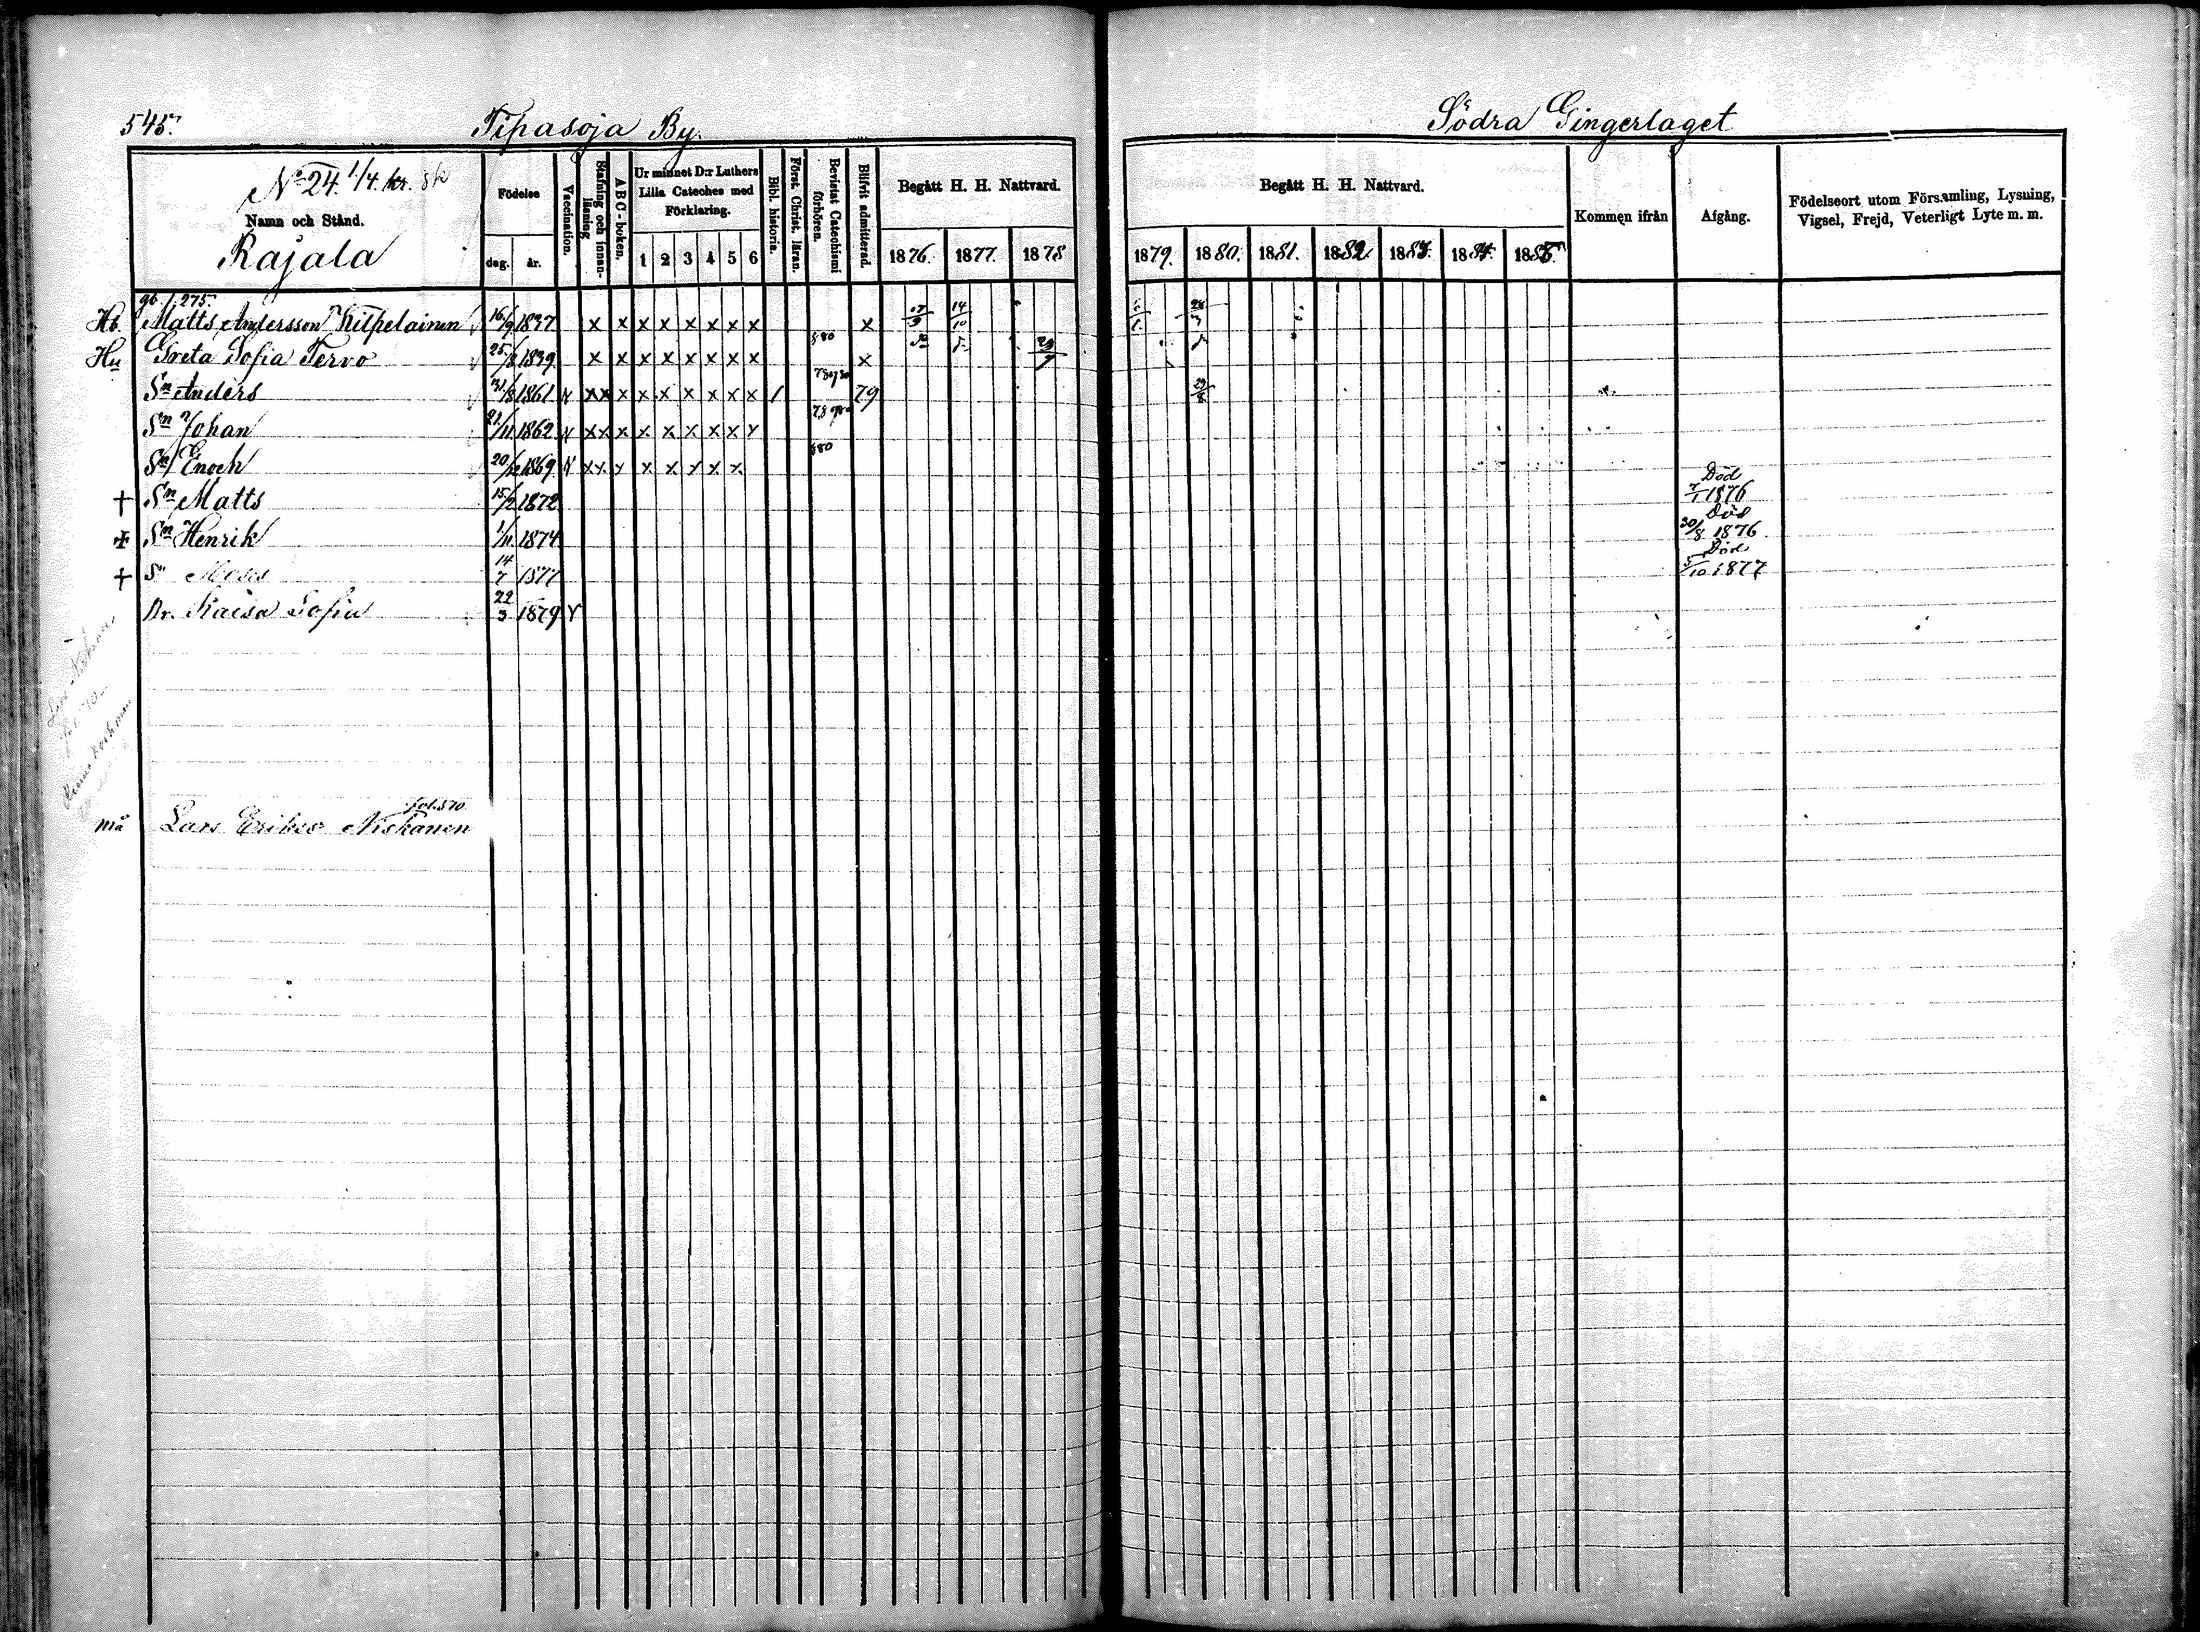 545.
Tipasoja By.
Södra Gingerlaget
No 24. 1/4. kr. sk
Namn och Stånd.
Rajala
Födelse
dag. år.
Vaccination.
Stafning och innanläsning
ABC-boken.
Ur minnet D:r Luthers Lilla Cateches med Förklaring.
1 2 3 4 5 6
Bibl. historia.
Först. Christ. läran.
Bevistat Catechismi förhören.
Blifvit admitterad.
Begått H. H. Nattvard.
1876. 1877. 1878
Begått H. H. Nattvard.
1879. 1880. 1881. 1882. 1883. 1884. 1885.
Kommen ifrån
Afgång.
Födelseort utom Församling, Lysning, Vigsel, Frejd, Veterligt Lyte m. m.
275.
Hb. Matts Andersson Kilpeläinen 16/9 1837 x x x x x x x x x 14/10
Hu Greta Sofia Tervo 25/8 1839 x x x x x x x x x
Sn Anders 31/8 1861 v xx x x x x x x x 1 79
Sn Johan 21/11 1862 v xx x x x x x x x
Sn Enoch 20/12 1869 v xx x x x x x x
† Sn Matts 15/2 1872 Död 7/1 1876
† Sn Henrik 1/11 1874 Död 30/8 1876.
† Sn Moses 14/7 1877 Död 5/10 1877
Dr. Kaisa Sofia 22/3 1879 v
fol. 570
må Lars Eriksso Niskanen